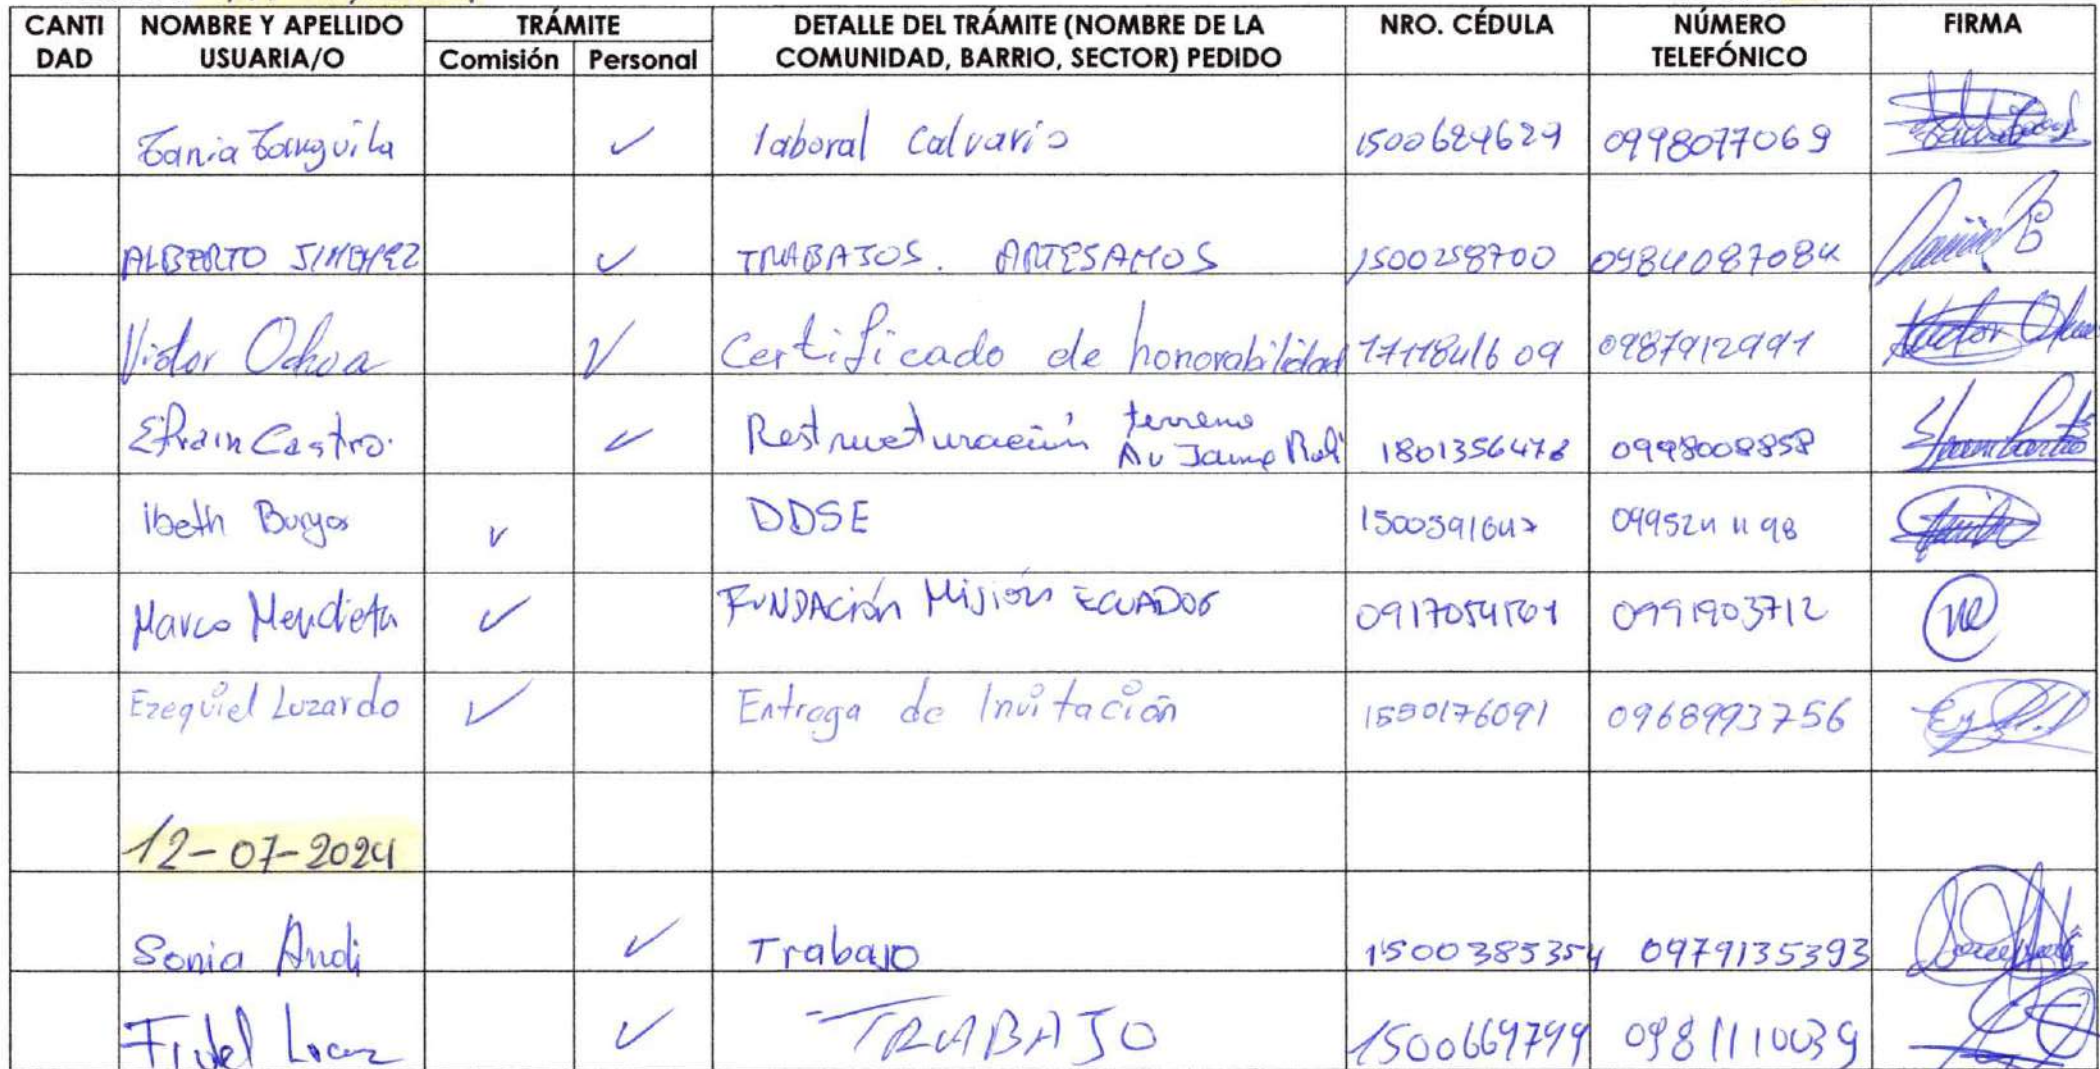 CANTI DAD NOMBRE Y APELLIDO USUARIA/O TRÁMITE Comisión Personal DETALLE DEL TRÁMITE (NOMBRE DE LA COMUNIDAD, BARRIO, SECTOR) PEDIDO NRO. CÉDULA NÚMERO TELEFÓNICO FIRMA
Tania Tanguila ✓ laboral Calvario 1500629629 0998077069
ALBERTO JIMENEZ ✓ TRABAJOS. ARTESANOS 1500258700 0984087084
Victor Ochoa ✓ Certificado de honorabilidad 1711841609 0987912991
Efrain Castro. ✓ Restructuración terreno Av Jaime 0998008858
Ibeth Burgos ✓ DDSE 0995241198
Marco Mendieta ✓ FUNDACIÓN Misión ECUADOR 0991903712
Ezequiel Luzardo ✓ Entrega de Invitación 1550176091 0968993756
12-07-2024
Sonia Andi ✓ Trabajo 1500385354 0979135393
Fidel ✓ TRABAJO 1500669799 0981110039